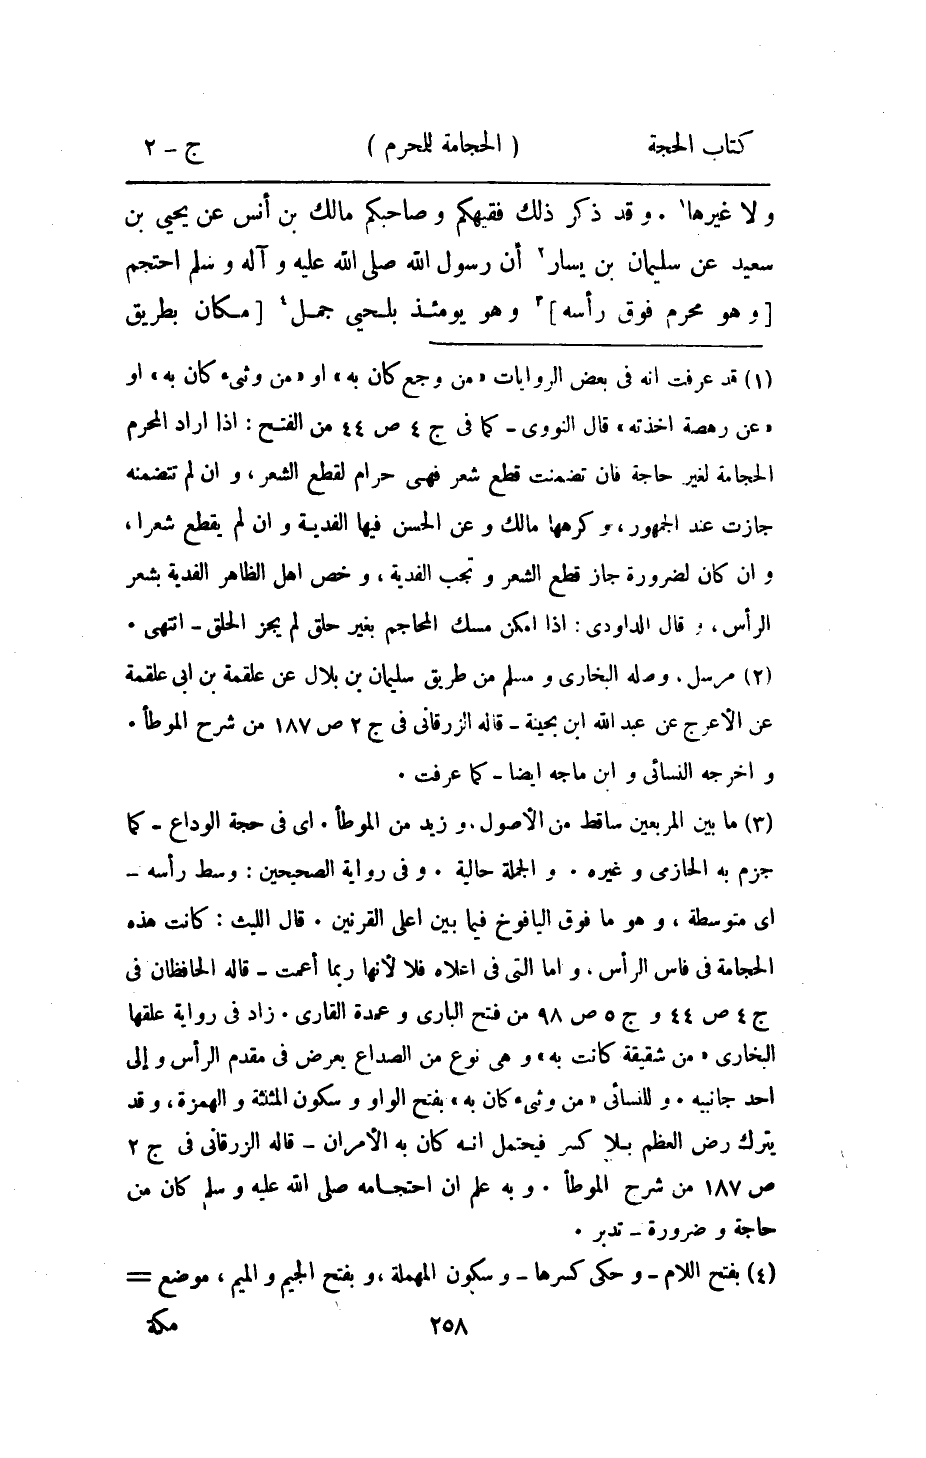 كتاب الحجة ( الحجامة للمحرم ) ج - ٢
و لا غيرها١ . و قد ذكر ذلك فقيهكم و صاحبكم مالك بن أنس عن يحيى بن
سعيد عن سليمان بن يسار٢ أن رسول الله صلى الله عليه و آله و سلم احتجم
[ و هو محرم فوق رأسه ]٣ و هو يومئذ بلحيى جمل٤ [ مكان بطريق
(١) قد عرفت انه فى بعض الروايات «من وجع كان به» او «من وثىء كان به» او
«عن رهصة اخذته» قال النووى - كما فى ج ٤ ص ٤٤ من الفتح : اذا اراد المحرم
الحجامة لغير حاجة فان تضمنت قطع شعر فهى حرام لقطع الشعر ، و ان لم تتضمنه
جازت عند الجمهور ، و كرهها مالك و عن الحسن فيها الفدية و ان لم يقطع شعرا ،
و ان كان لضرورة جاز قطع الشعر و تجب الفدية ، و خص اهل الظاهر الفدية بشعر
الرأس ، و قال الداودى : اذا امكن مسك المحاجم بغير حلق لم يجز الحلق - انتهى .
(٢) مرسل . وصله البخارى و مسلم من طريق سليمان بن بلال عن علقمة بن ابى علقمة
عن الأعرج عن عبد الله ابن بحينة - قاله الزرقانى فى ج ٢ ص ١٨٧ من شرح الموطأ .
و اخرجه النسائى و ابن ماجه ايضا - كما عرفت .
(٣) ما بين المربعين ساقط من الأصول . و زيد من الموطأ . اى فى حجة الوداع - كما
جزم به الحازمى و غيره . و الجملة حالية . و فى رواية الصحيحين : وسط رأسه -
اى متوسطة ، و هو ما فوق اليافوخ فيما بين اعلى القرنين . قال الليث : كانت هذه
الحجامة فى فاس الرأس ، و اما التى فى اعلاه فلا لأنها ربما أعمت - قاله الحافظان فى
ج ٤ ص ٤٤ و ج ٥ ص ٩٨ من فتح البارى و عمدة القارى . زاد فى رواية علقها
البخارى «من شقيقة كانت به» و هى نوع من الصداع يعرض فى مقدم الرأس و إلى
احد جانبيه . و للنسائى «من وثىء كان به» بفتح الواو و سكون المثلثة و الهمزة ، و قد
يترك رض العظم بلا كسر فيحتمل انه كان به الأمران - قاله الزرقانى فى ج ٢
ص ١٨٧ من شرح الموطأ . و به علم ان احتجامه صلى الله عليه و سلم كان من
حاجة و ضرورة - تدبر .
(٤) بفتح اللام - و حكى كسرها - و سكون المهملة ، و بفتح الجيم و الميم ، موضع =
٢٥٨ مكة